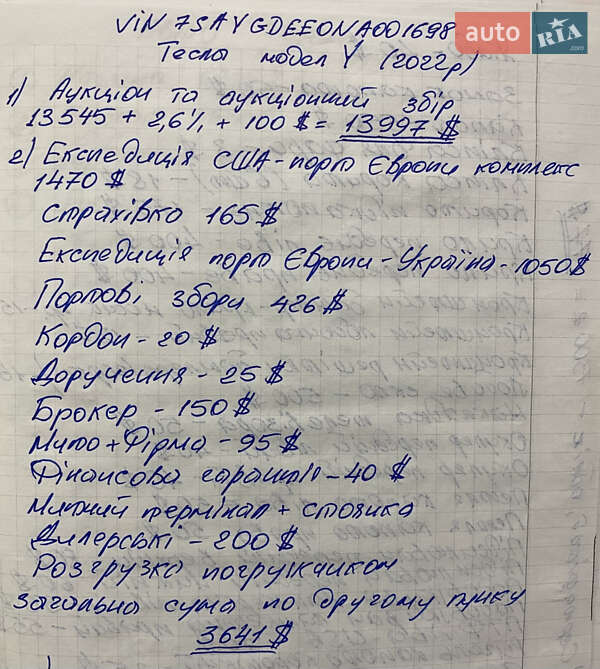 VIN 7SAYGDEE0NA001698
auto RIA.com
Тесла модел Y (2022р)
1) Аукціон та аукціонний збір
13545 + 2,6% + 100 $ = 13997 $
2) Експедиція США - порт Європи комплекс
1470 $
Страхівка 165 $
Експедиція порт Європи - Україна - 1050 $
Портові збори 426 $
Кордон - 20 $
Доручення - 25 $
Брокер - 150 $
Мито + Фірма - 95 $
Фінансова гарантія - 40 $
Митний термінал + стоянка
Дилерські - 200 $
Розгрузка погрузчиком
Загальна сума по другому пунку
3641 $